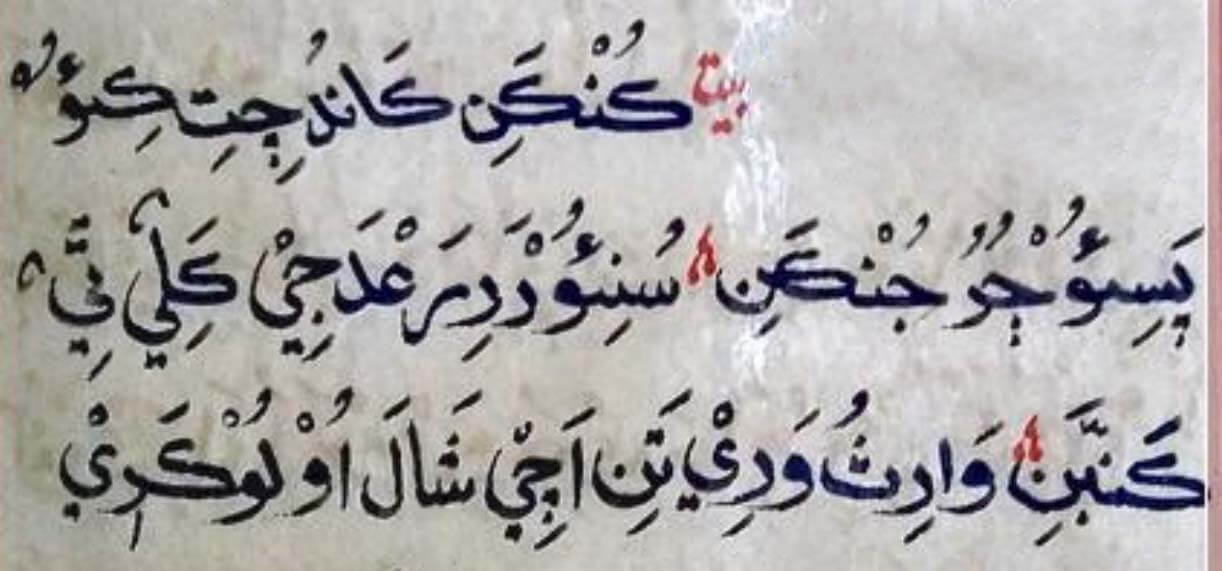 بيت كُنْكَنِ كَانڌُ چِتِ كِئوُ
پَسِئوُ جُرُ جُنْكَنِ سُنِئوُ رَعَدَ جِيْ كَلِيْ تِيَّ
كَنبَّنِ وَارِثُ وَرِيْ تَنِ اَچِيْ شَالَ اُوْ لُوْكَرِيْ